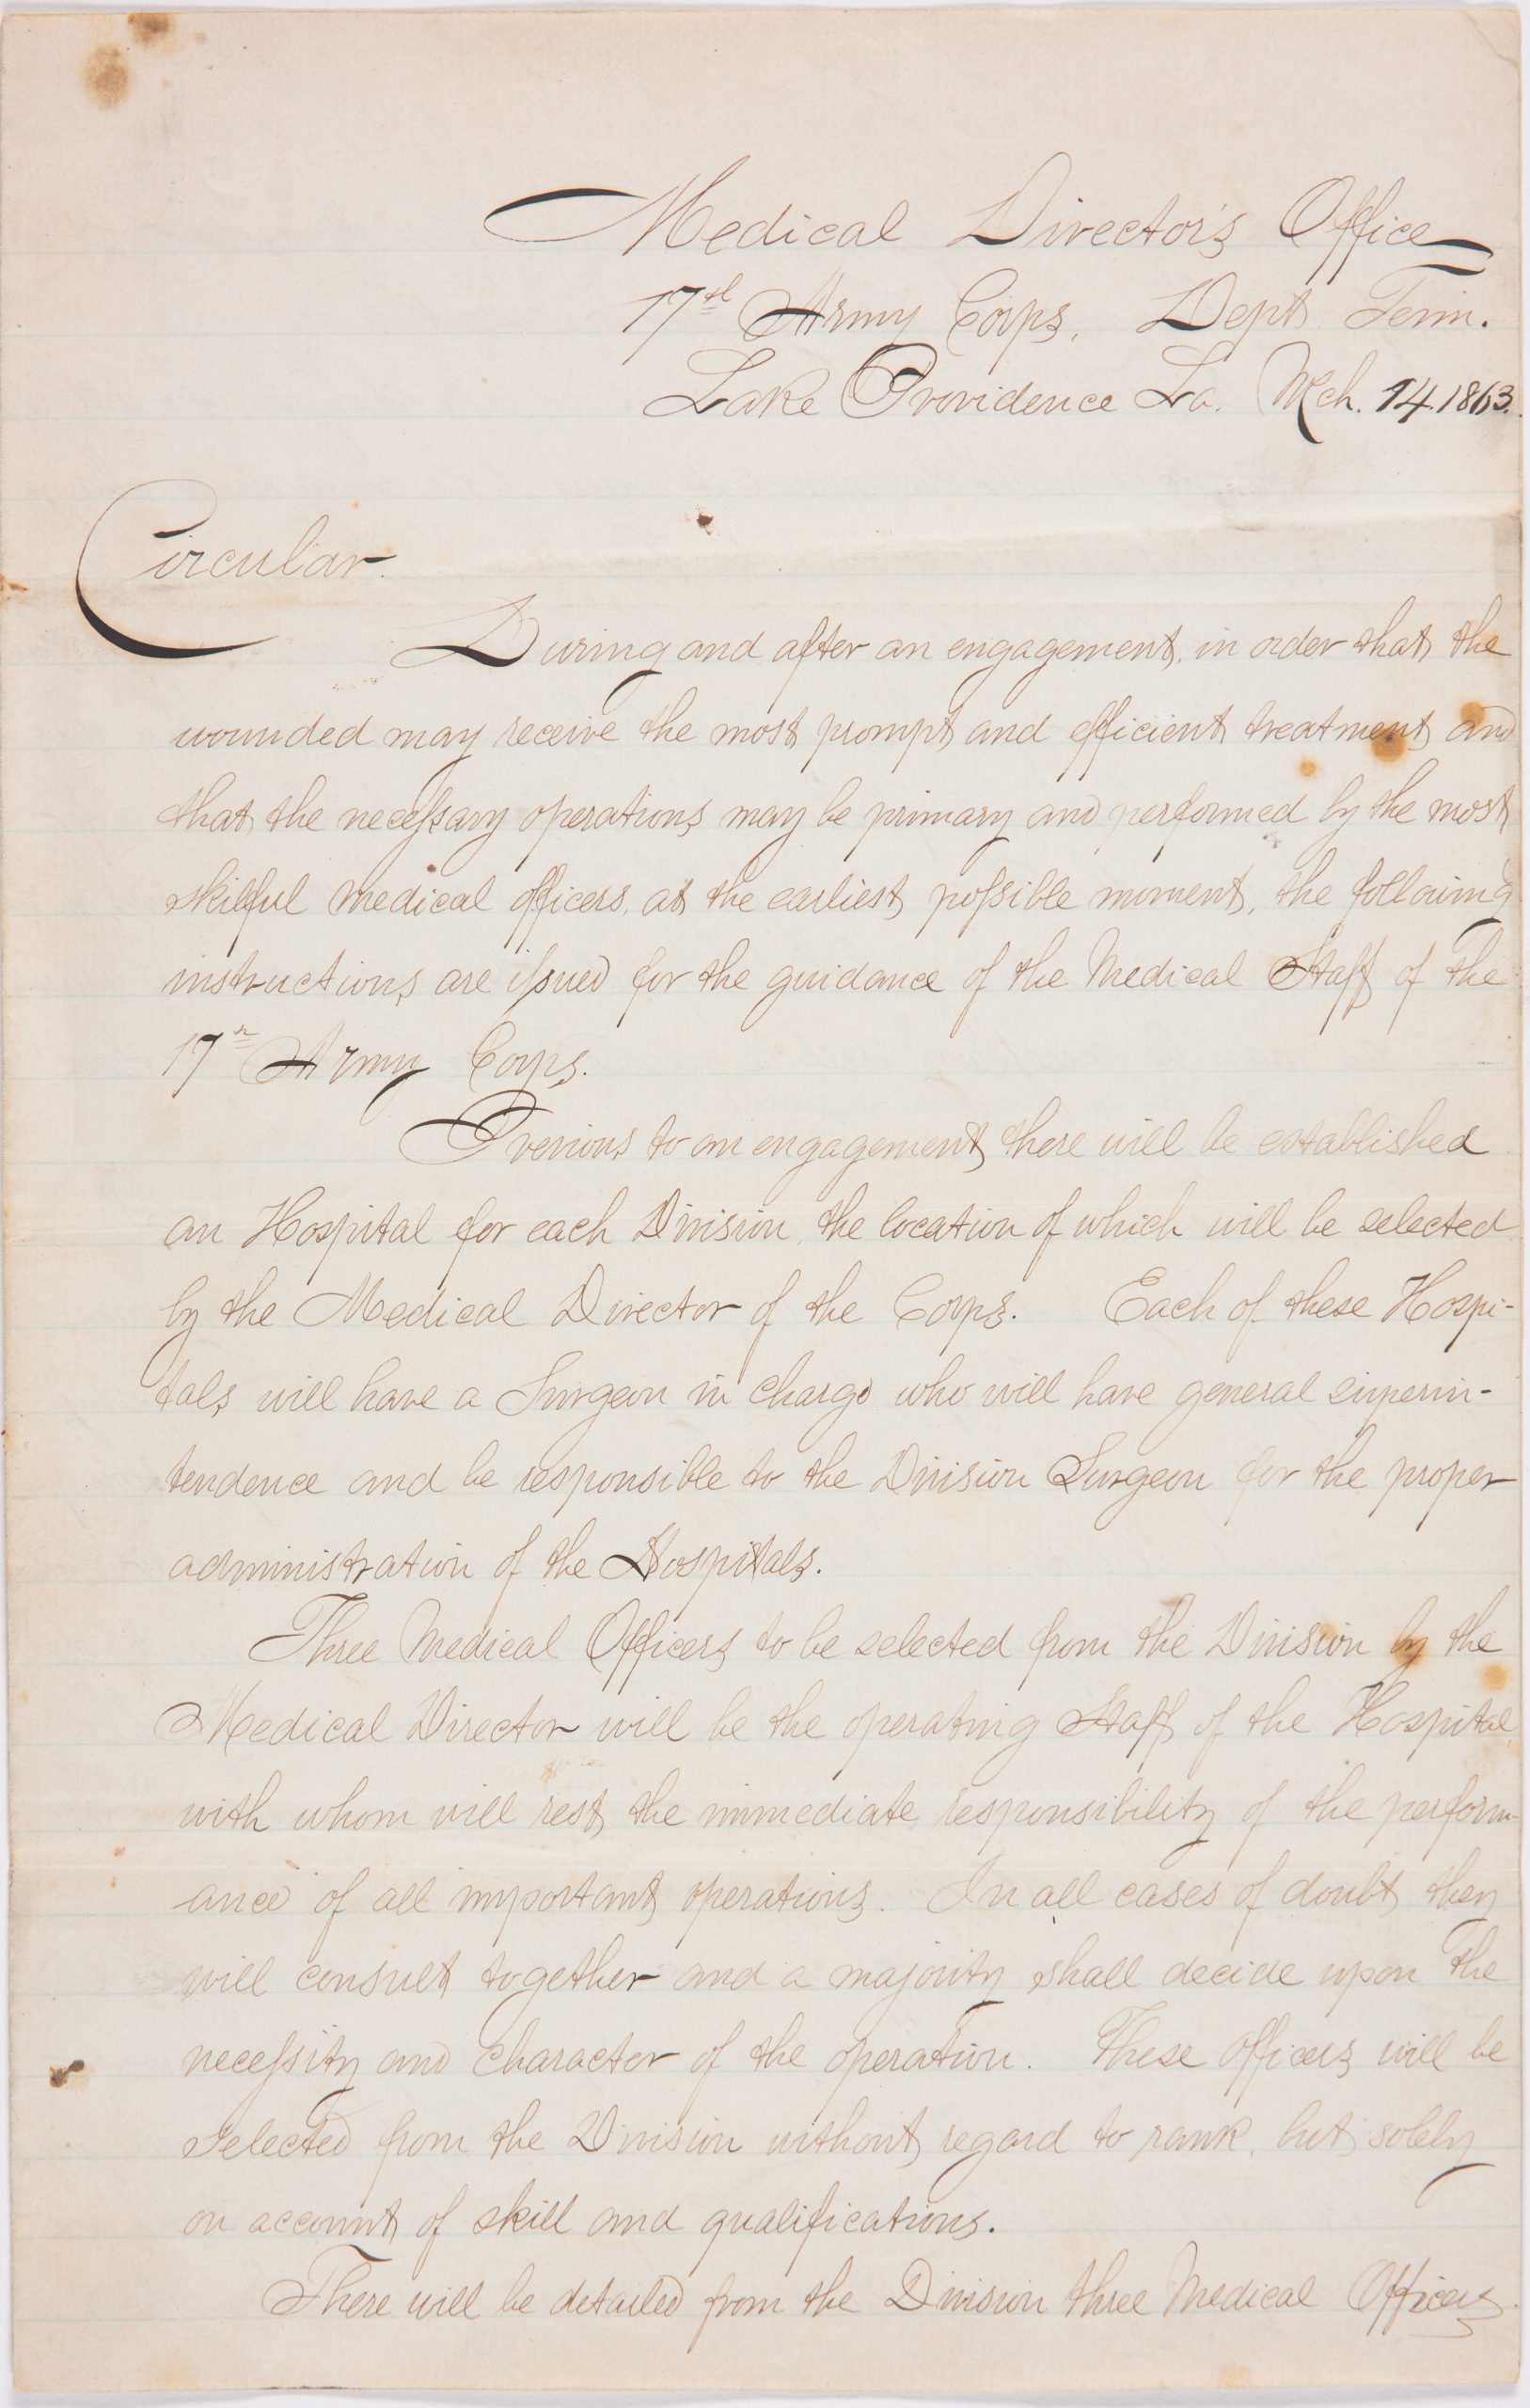 Medical Director's Office
17th Army Corps, Dept Tenn.
Lake Providence La. Mch. 14. 1863.
Circular.
During and after an engagement, in order that the
wounded may receive the most prompt and efficient treatment and
that the necessary operations may be primary and performed by the most
skilful medical officers, at the earliest possible moment, the following
instructions are issued for the guidance of the Medical Staff of the
17th Army Corps.
Previous to an engagement there will be established
an Hospital for each Division, the location of which will be selected
by the Medical Director of the Corps. Each of these Hospi-
tals will have a Surgeon in charge who will have general superin-
tendence and be responsible to the Division Surgeon for the proper
administration of the Hospitals.
Three Medical Officers to be selected from the Division by the
Medical Director will be the operating Staff of the Hospital,
with whom will rest the immediate responsibility of the perform-
ance of all important operations. In all cases of doubt they
will consult together and a majority shall decide upon the
necessity and character of the operation. These officers will be
selected from the Division without regard to rank, but solely
on account of skill and qualifications.
There will be detailed from the Division three Medical Officers